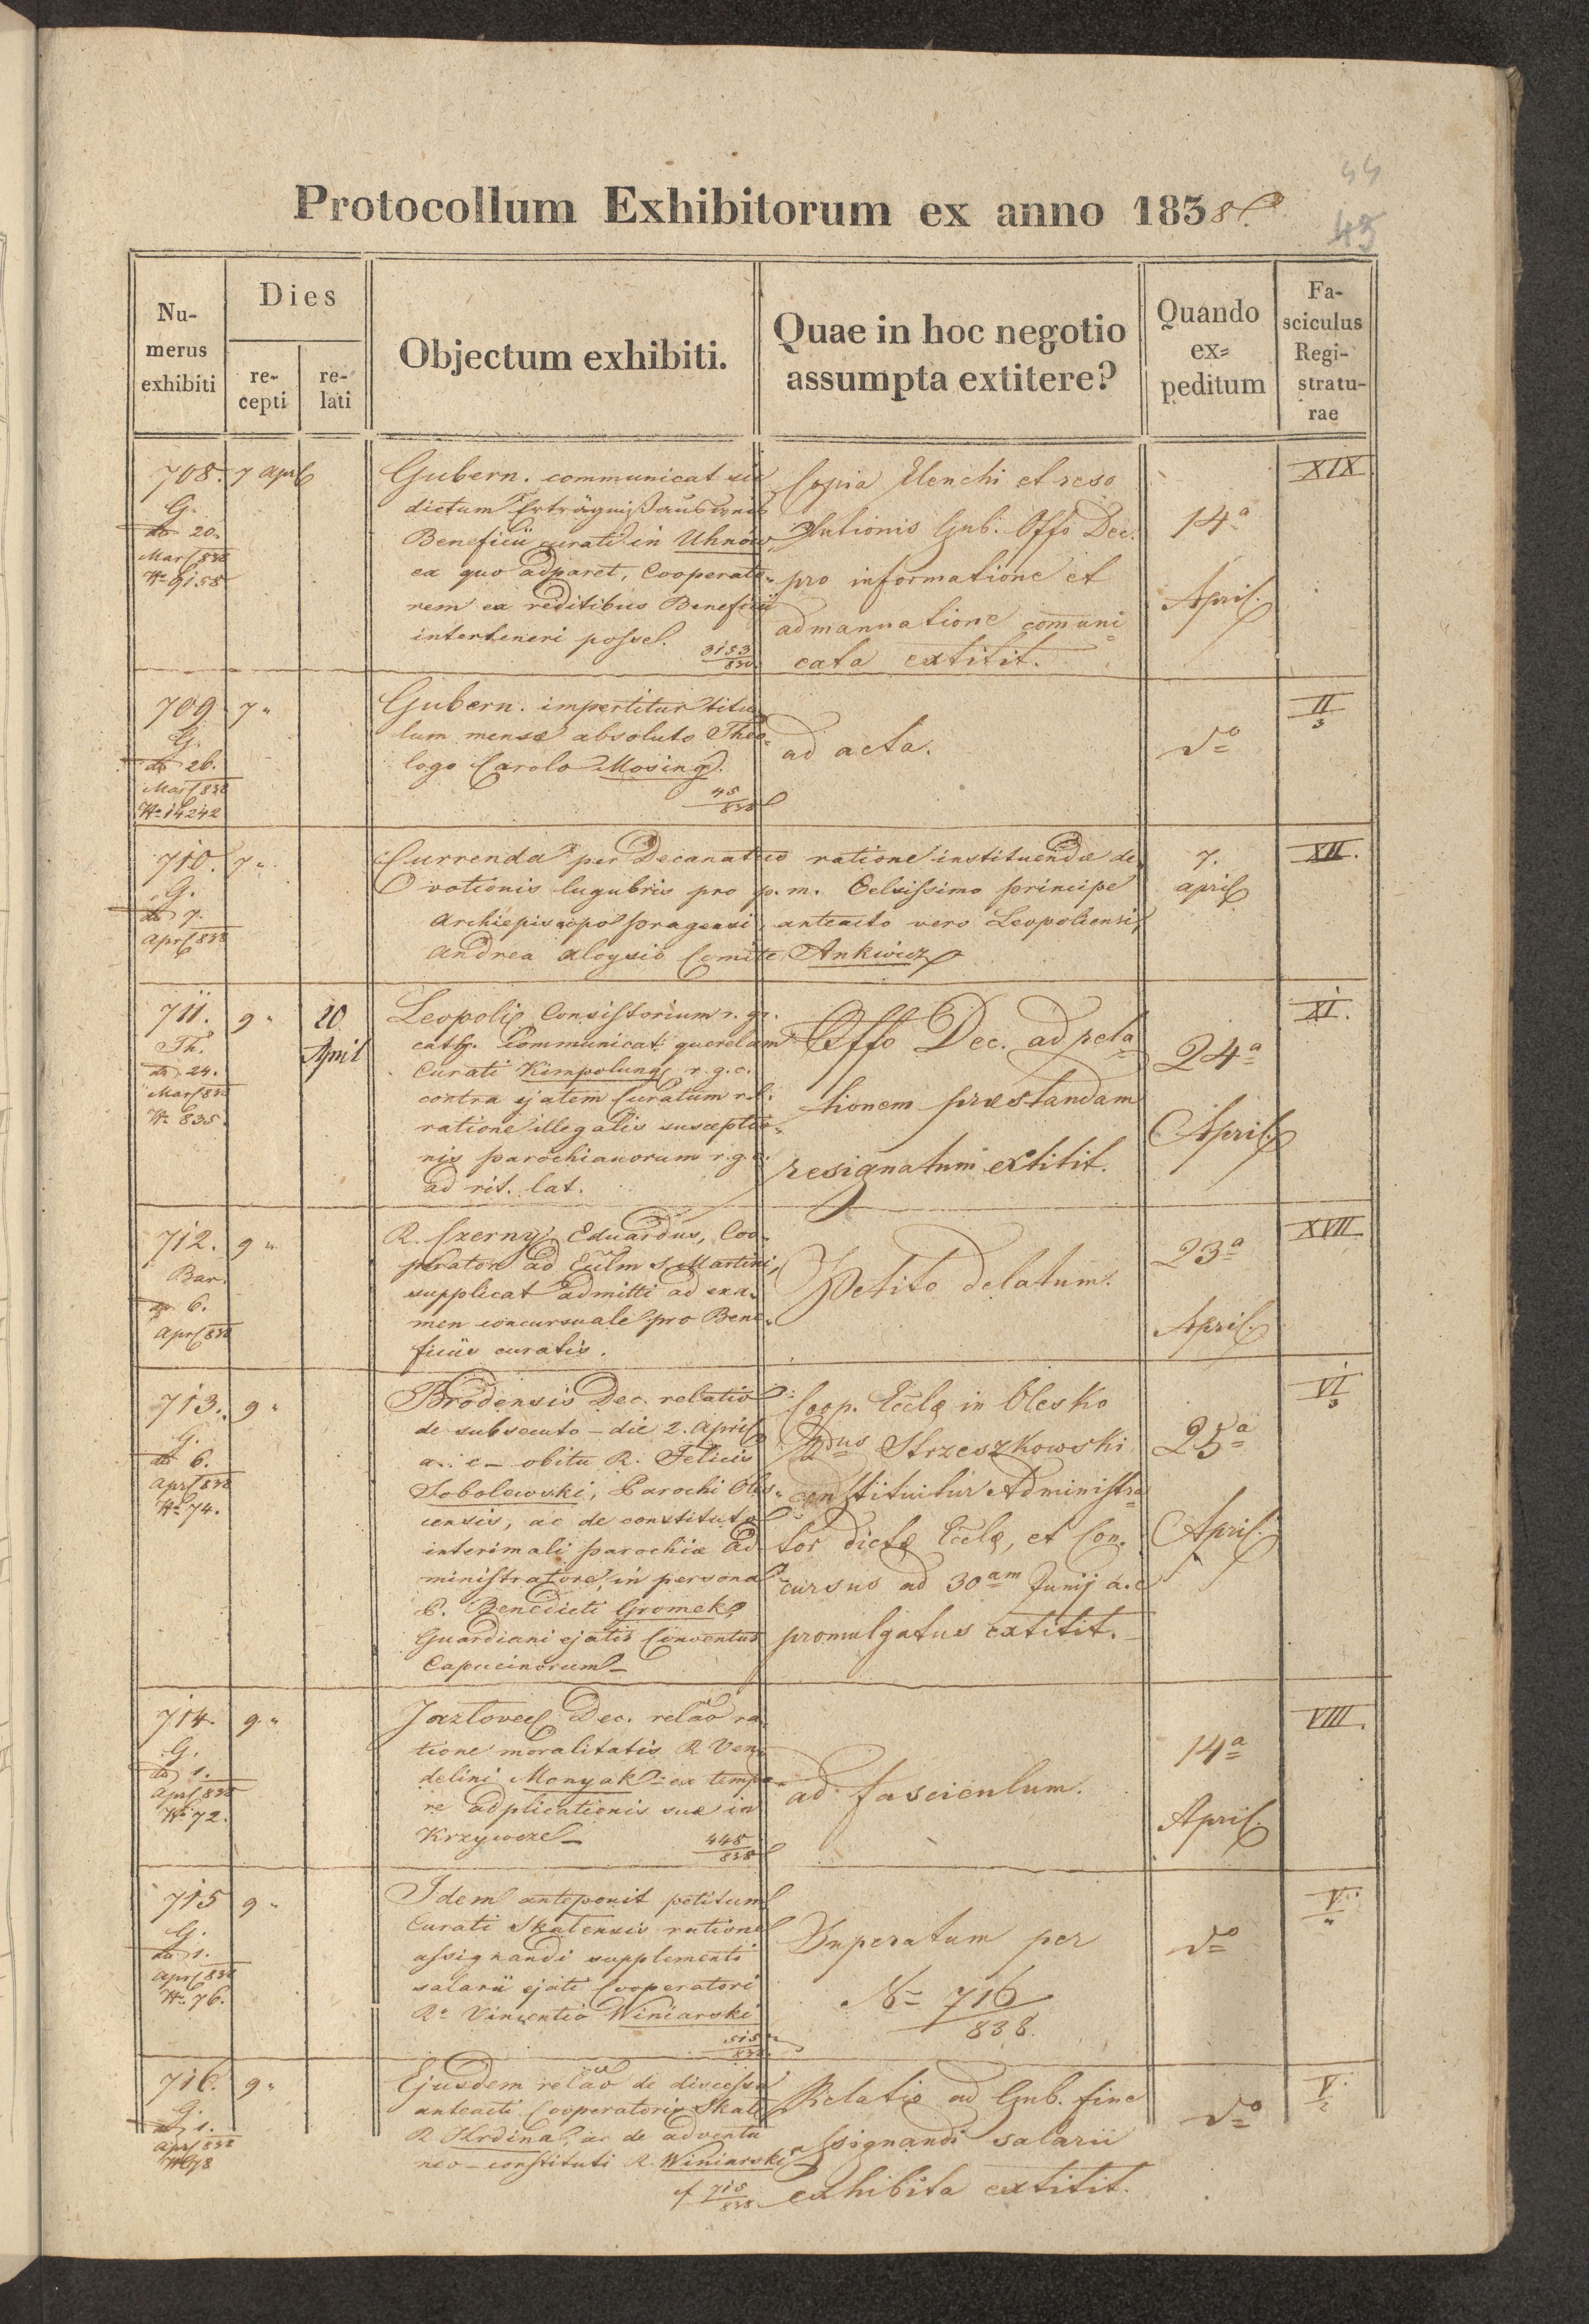 44
45
Protocollum Exhibitorum ex anno 1838
Nu-
merus
exhibiti
Dies
re-
cepti
re-
lati
Objectum exhibiti.
Quae in hoc negotio
assumpta extitere?
Quando
ex-
peditum
Fa-
sciculus
Regi-
stratu-
rae
708.
G.
do 20.
Mart 838
No 9158
7 April
Gubern. communicat
dictum Erträgnißausweis
Beneficii curati in Uhnów,
ex quo adparet, Cooperato-
rem ex reditibus Beneficii
interteneri posse.
3153
838.
Copia Elenchi et reso
lutionis Gub. Offo Dec.
pro informatione et
admanuatione comuni
cata extitit.
14a
April.
XIX
709
G.
do 26.
Mart 838
No 14242
7 "
Gubern. impertitur titu-
lum mensæ absoluto Theo-
logo Carolo Mosing.
45
838
ad acta.
do
II
3
710.
G.
do 7.
Apr 838
7 "
Currenda per Decanatus ratione instituendæ de-
votionis lugubris pro p. m. Celsissimo principe
Archiepiscopo pragensi, anteacto vero Leopoliensi,
Andrea Aloysio Comite Ankwicz
7.
april
XII.
711.
Th.
do 24.
Mart 838
No 835.
9 "
20
April
Leopoli Consistorium r. gr.
cath. communicat querelam
Curati Kimpolung r. g. c.
contra ejatem Curatum r. l.
ratione illegalis susceptio-
nis parochianorum r. g. c.
ad rit. lat.
Offo Dec. ad rela
tionem præstandam
resignatum extitit.
24a
April.
XI.
712.
Bar.
do 6.
Apr 838
9 "
R. Czerny Eduardus, Coo-
perator ad Ecclm S. Martini,
supplicat admitti ad exa-
men concursuale pro Bene-
ficiis curatis.
Petito delatum.
23a
April.
XVII
713.
G.
do 6.
Apr 838
No 74.
9 "
Brodensis Dec. relatio
de subsecuto - die 2. April
a. c - obitu R. Felicis
Sobolewski, Parochi Oles-
censis, ac de constituto
interimali parochiæ Ad-
ministratore, in persona
P. Benedicti Gromek,
Guardiani ejatis Conventus
Capucinorum -
Coop. Ecclæ in Olesko
Strzeszkowski
constituitur Administra
tor dictæ Ecclæ, et Con-
cursus ad 30am Junij a. c
promulgatus extitit. -
25a
April.
VI
3
714.
G.
do 1.
Apr 838
No 72.
9 "
Jazlovec Dec. relão ra-
tione moralitatis R Ven-
delini Monyak - ex tempo-
re adplicationis suæ in
Krzywcze -
448
838
ad fasciculum.
14a
April.
VIII.
715
G.
do 1.
Apr 838
No 76.
9 "
Idem anteponit petitum
Curati Skalensis ratione
assignandi supplementi
salarii ejati Cooperatori
Ro Vincentio Winiarski
515
838.
Superatum per
No 716
838.
do
V
716.
G.
do 1.
Apr 838
No 78
9 "
Ejusdem relão de discessu
anteacti Cooperatoris Skalæ
R Hrdina, ac de adventu
neo-constituti R. Winiarski
cf 715
838
Relatio ad Gub. fine
assignandi salarii
exhibita extitit.
do
V
2